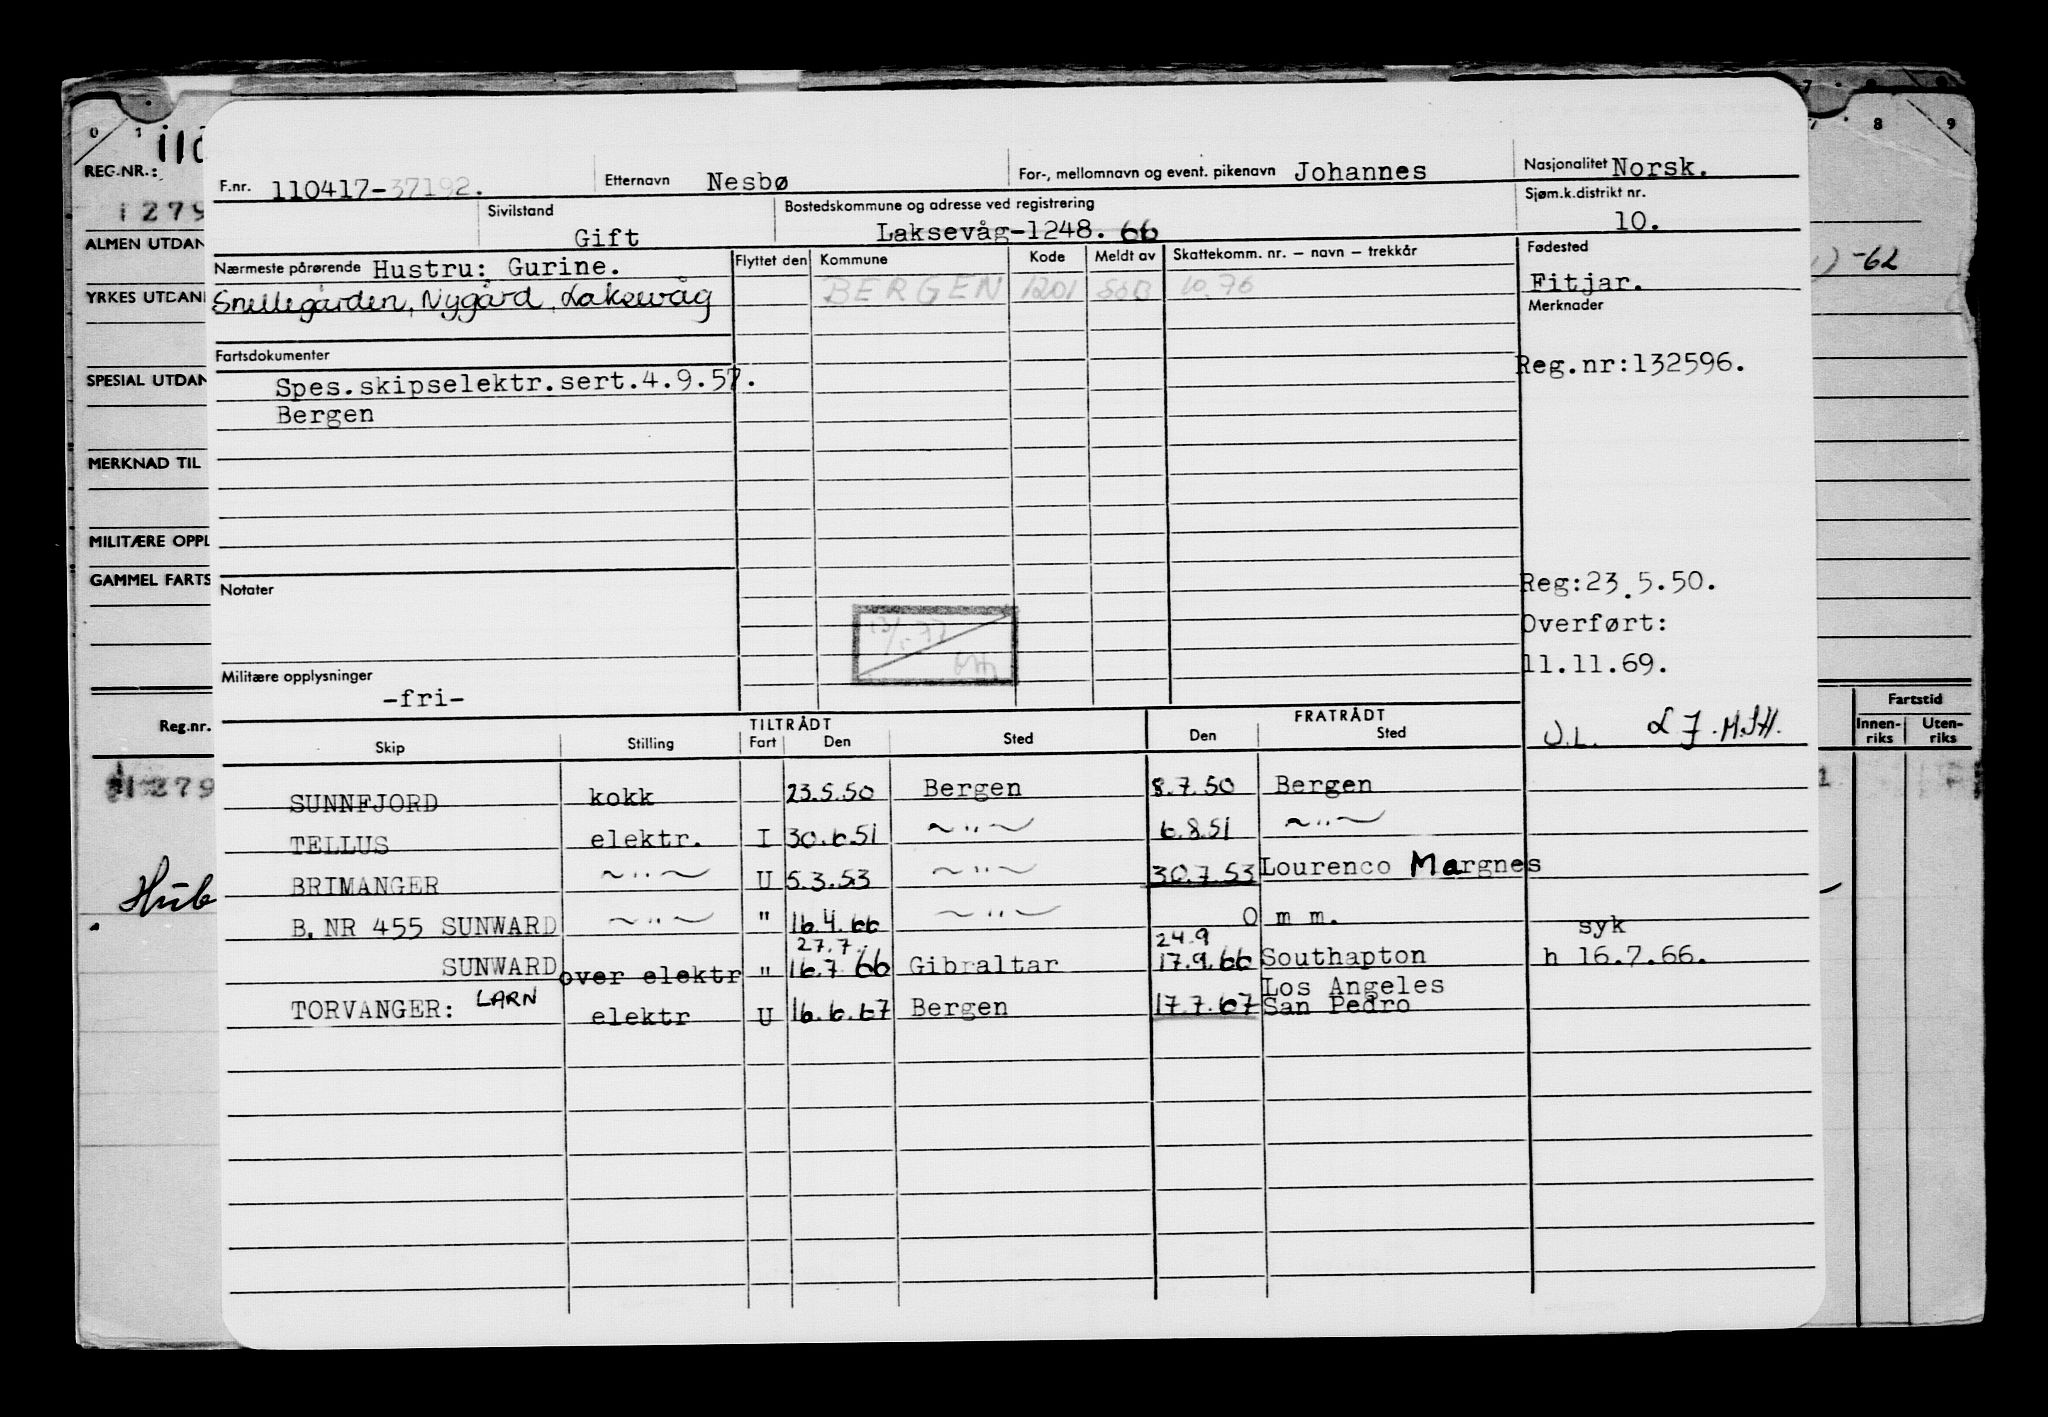 0 1 7 8 9
REG.NR.: 110
1279
ALMEN UTDAN
YRKES UTDAN
SPESIAL UTDAN
MERKNAD TIL
MILITÆRE OPPL
GAMMEL FARTS
Reg.nr.
1279
Hub
-62
Fartstid
Innen-riks Uten-riks
F.nr. 110417-37192. Etternavn Nesbø For-, mellomnavn og event. pikenavn Johannes Nasjonalitet Norsk.
Sivilstand Gift Bostedskommune og adresse ved registrering Laksevåg-1248. 66 Sjøm.k.distrikt nr. 10.
Nærmeste pårørende Hustru: Gurine. Flyttet den Kommune Kode Meldt av Skattekomm. nr. – navn – trekkår Fødested
Snellegården, Nygård, Laksevåg BERGEN 1201 10.76 Fitjar.
Merknader
Fartsdokumenter Reg.nr:132596.
Spes.skipselektr.sert.4.9.57.
Bergen
Notater Reg:23.5.50.
Overført:
11.11.69.
Militære opplysninger
-fri-
TILTRÅDT FRATRÅDT
Skip Stilling Fart Den Sted Den Sted
SUNNFJORD kokk 23.5.50 Bergen 8.7.50 Bergen
TELLUS elektr. I 30.6.51 ~"~ 6.8.51 ~"~
BRIMANGER ~"~ U 5.3.53 ~"~ 30.7.53 Lourenco Margnes
B.NR 455 SUNWARD ~"~ " 16.4.66 ~"~ O m m. syk
27.7 24.9
SUNWARD over elektr " 16.7 66 Gibraltar 17.9.66 Southapton h 16.7.66.
Los Angeles
TORVANGER: LARN elektr U 16.6.67 Bergen 17.7.67 San Pedro